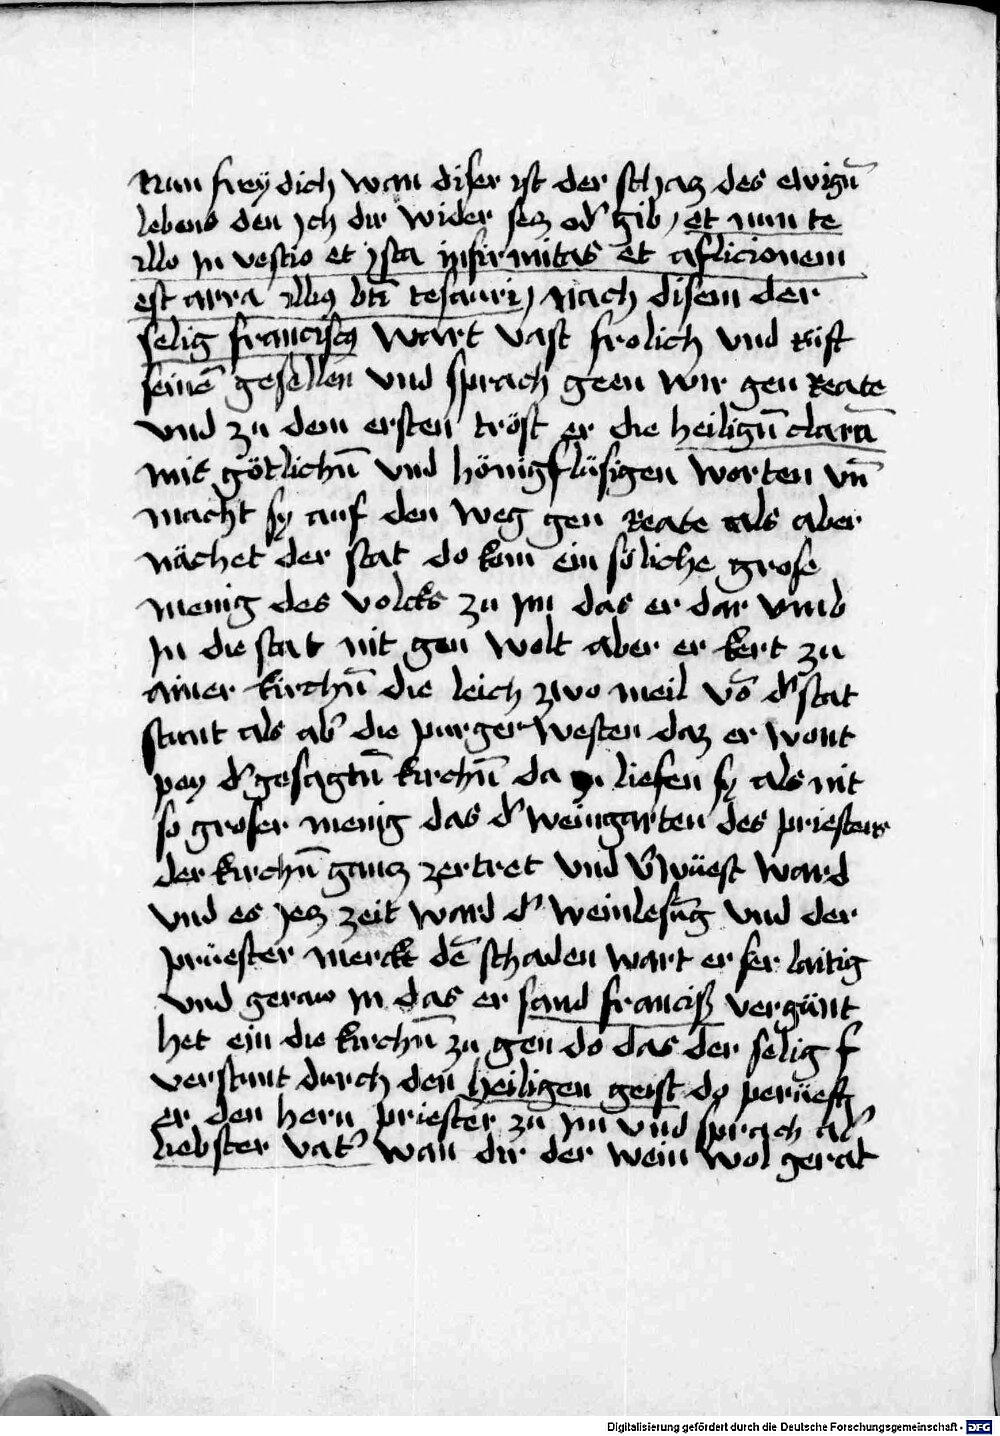 Nun freÿ dich wan diser ist der schaz des ewigñ
lebens den jch dir wider sez od' gib / et nun te
illo jn vestio et ista infirmitas et aflicionem
est arra illiꝯ bti̅ tesauri / nach disem der
selig franciscꝯ wart vast frolich und rüft
seine̅ gesellen vnd sprach geen wir gen Reate
vnd zu dem ersten tröst er die heiligñ clara̅
mit götlichñ vnd hönigflüsigen worten vn̅
macht sy auf den weg gen Reate als aber
nächet der stat do kom ein söliche grose
menig des volcks zu jm das er dar vmb
jn die stat nit gen wolt aber er kert zu
ainer kirchñ die leich zwo meil vo̅ d' stat
stunt als ab' die purger westen daz er wont
pey d' gesagtñ kirchñ da liefen sy als mit
so groser menig das d' weingarten des priesters
der kirchñ gancz zertret vnd v'wüest ward
vnd es jez zeit ward d' weinlesu̅g vnd der
prüester merckt de̅ schaden wart er ser laitig
vnd geraw jn das er sand francisß vergünt
het ein die kirchñ zu gen do das der selig f
verstunt durch den heiligen geist do perüeft
er den hern priester zu jm vnd sprach al'
liebster vat' wan dir der wein wol gerat
Digitalisierung gefördert durch die Deutsche Forschungsgemeinschaft - DFG